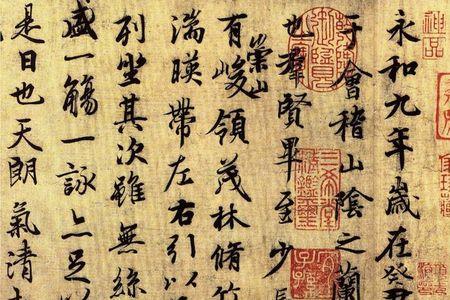 永和九年歲在癸
于會稽山陰之蘭
也羣賢畢至少
有崇山峻領茂林脩竹
湍暎帶左右引以
列坐其次雖無絲
盛一觴一詠亦足
是日也天朗氣清
神品
三希堂精鑑璽
宜子孫